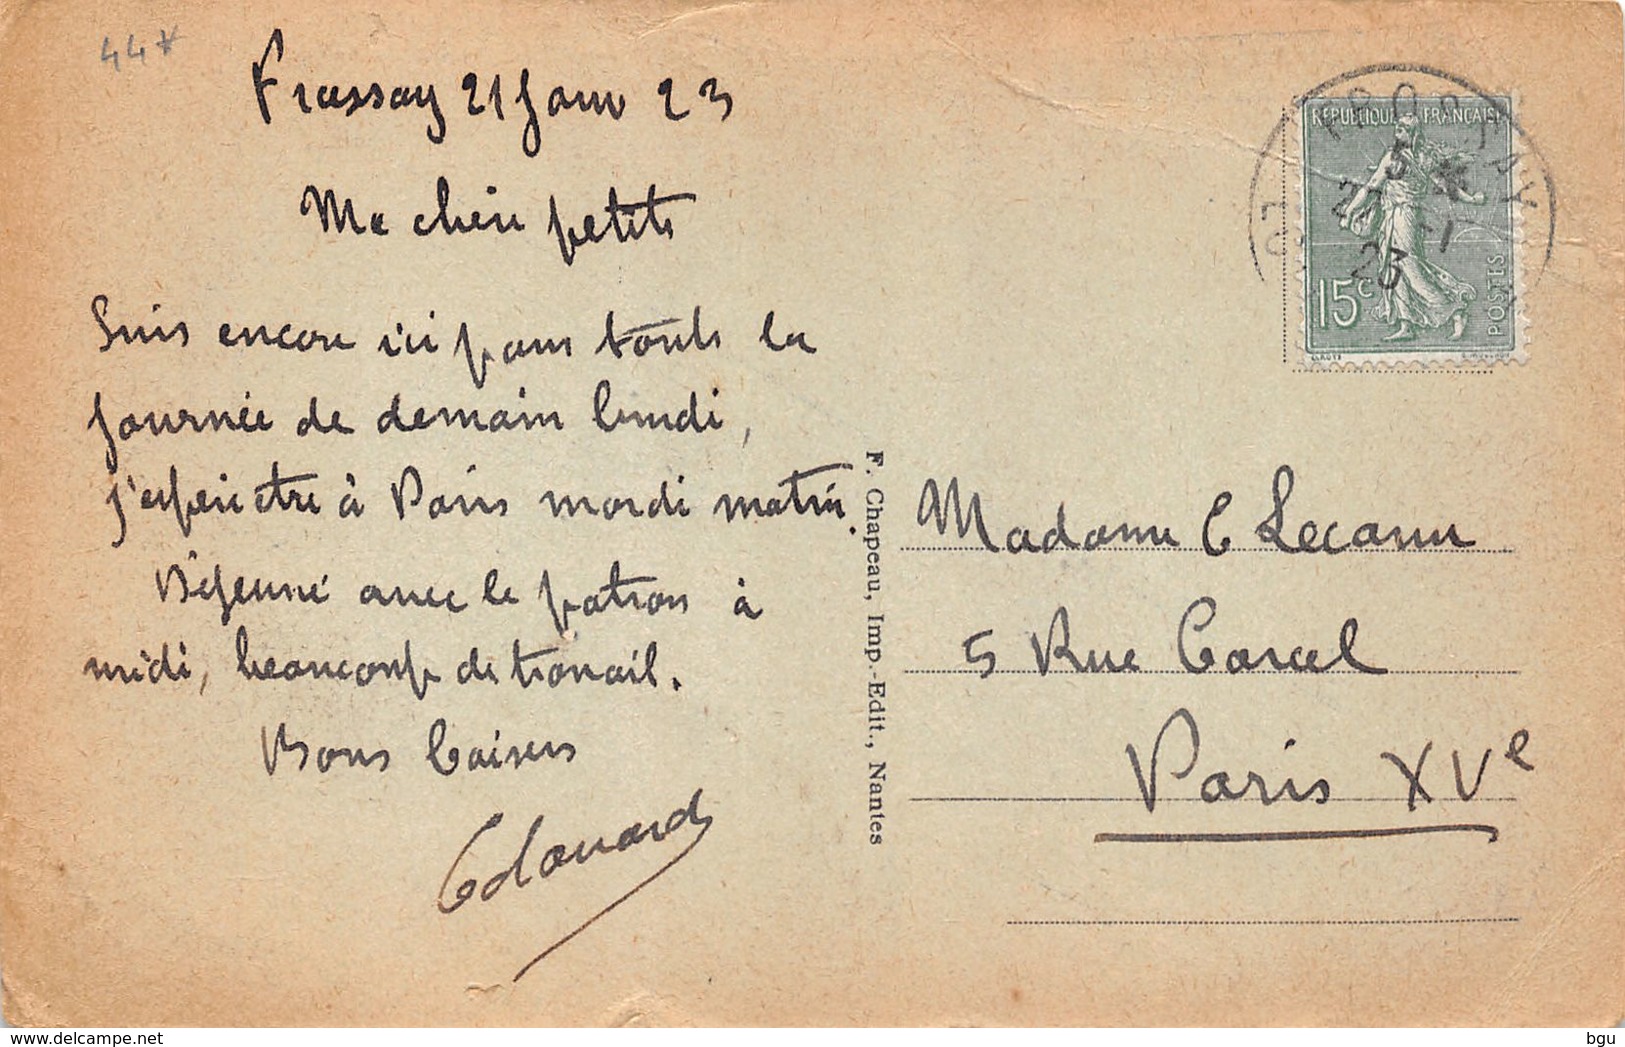 44*
Frossay 21 Janv 23
Ma chère petite
Suis encore ici pour toute la
journée de demain lundi,
j'espère être à Paris mardi matin.
Déjeuné avec le patron à
midi, beaucoup de travail.
Bons baisers
Edouard
F. Chapeau, Imp.-Edit., Nantes
REPUBLIQUE FRANÇAISE
15c
POSTES
FROSSAY
21 -1
23
Madame E Lecanu
5 Rue Carcel
Paris XVe
delcampe.net
bgu